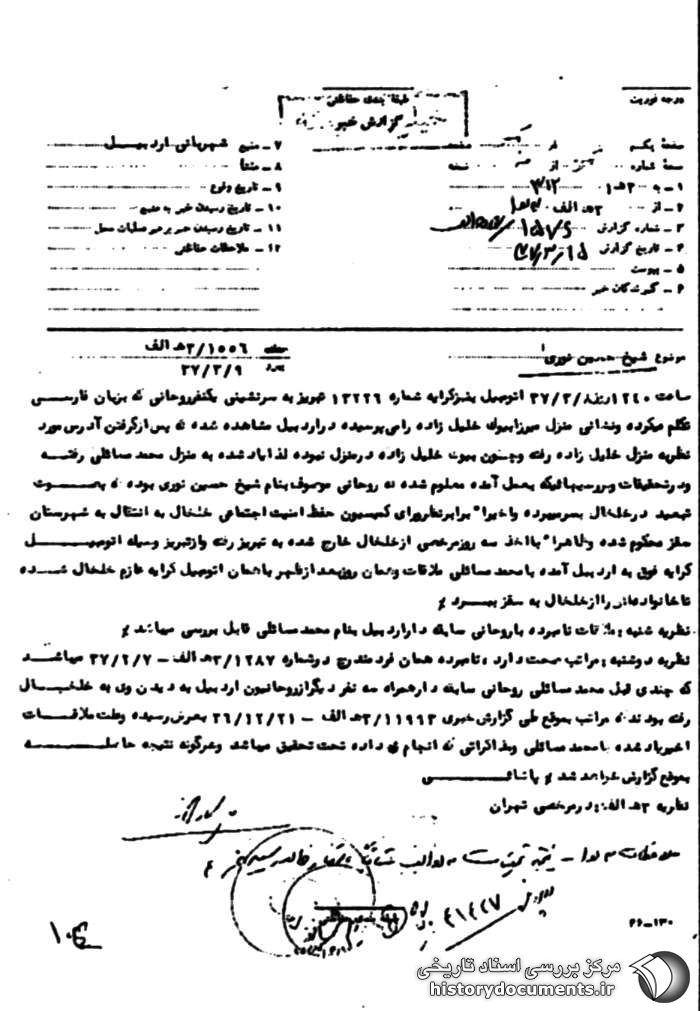 درجه فوریت
طبقه بندی حفاظتی
گزارش خبر
صفحه یکم از صفحه
نسخه شماره از نسخه
۱ - به ۳ هـ ۱ ۳۱۲
۲ - از ۳ هـ الف
۳ - شماره گزارش
۴ - تاریخ گزارش ۳۷/۳/۱۵
۵ - پیوست
۶ - گیرندگان خبر
۷ - منبع شهربانی اردبیل
۸ - منشأ
۹ - تاریخ وقوع
۱۰ - تاریخ رسیدن خبر به منبع
۱۱ - تاریخ رسیدن خبر به رهبر عملیات محل
۱۲ - ملاحظات حفاظتی
موضوع شیخ حسین نوری
۳/۱۵۵۶ هـ الف
۳۷/۳/۹
ساعت ۱۲۴۰ روز ۳۷/۳/۸ اتومبیل بنز کرایه شماره ۱۳۲۲۶ تبریز به سرنشینی یکنفر روحانی که بزبان فارسی
تکلم میکرده ونشانی منزل میرزا بیوک خلیل زاده را می پرسیده در اردبیل مشاهده شده که پس از گرفتن آدرس مورد
نظر به منزل خلیل زاده رفته وچون بیوک خلیل زاده در منزل نبوده لذا یاد شده به منزل محمد مسائلی رفته
ودر تحقیقات وبررسیهائیکه بعمل آمده معلوم شده که روحانی موصوف بنام شیخ حسین نوری بوده که بصورت
تبعید در خلخال بسر میبرده واخیرا" برابر نظر ورای کمیسیون حفظ امنیت اجتماعی خلخال به انتقال به شهرستان
سقز محکوم شده وظاهرا" با اخذ سه روز مرخصی از خلخال خارج شده به تبریز رفته واز تبریز وسیله اتومبیل
کرایه فوق به اردبیل آمده با محمد مسائلی ملاقات وهمان روز بعد از ظهر با همان اتومبیل کرایه عازم خلخال شده
تا خانواده اش را از خلخال به سقز ببرد ٪
نظریه شنبه : ملاقات نامبرده با روحانی سابقه دار اردبیل بنام محمد مسائلی قابل بررسی میباشد ٪
نظریه دوشنبه : مراتب صحت دارد ، نامبرده همان فرد مندرج در شماره ۳/۱۲۸۷ هـ الف - ۳۷/۲/۷ میباشد
که چندی قبل محمد مسائلی روحانی سابقه دار همراه سه نفر دیگر از روحانیون اردبیل به دیدن وی به خلخال
رفته بودند که مراتب بموقع طی گزارش خبری ۳/۱۱۹۹۳ هـ الف - ۳۶/۱۲/۲۱ بعرض رسیده وعلت ملاقات
اخیر یاد شده با محمد مسائلی ومذاکراتی که انجام می داده تحت تحقیق میباشد وهرگونه نتیجه حاصله
بموقع گزارش خواهد شد ٪ پاشائی
نظریه ۳ هـ الف : در مرخصی تهران
۴۱۴۲۷
۱۰۴
۲۶-۱۳۰
مرکز بررسی اسناد تاریخی
historydocuments.ir